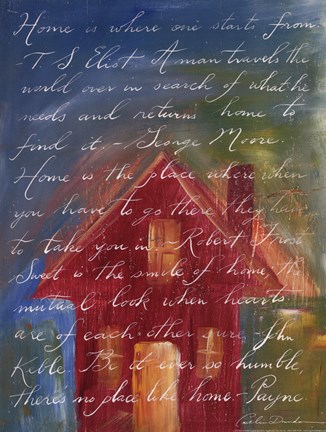 Home is where one starts from.
-T. S. Eliot. A man travels the
world over in search of what he
needs and returns home to
find it. - George Moore.
Home is the place where when
you have to go there they have
to take you in. - Robert Frost
Sweet is the smile of home, the
mutual look when hearts
are of each other sure. - John
Keble. Be it ever so humble,
there's no place like home - Payne